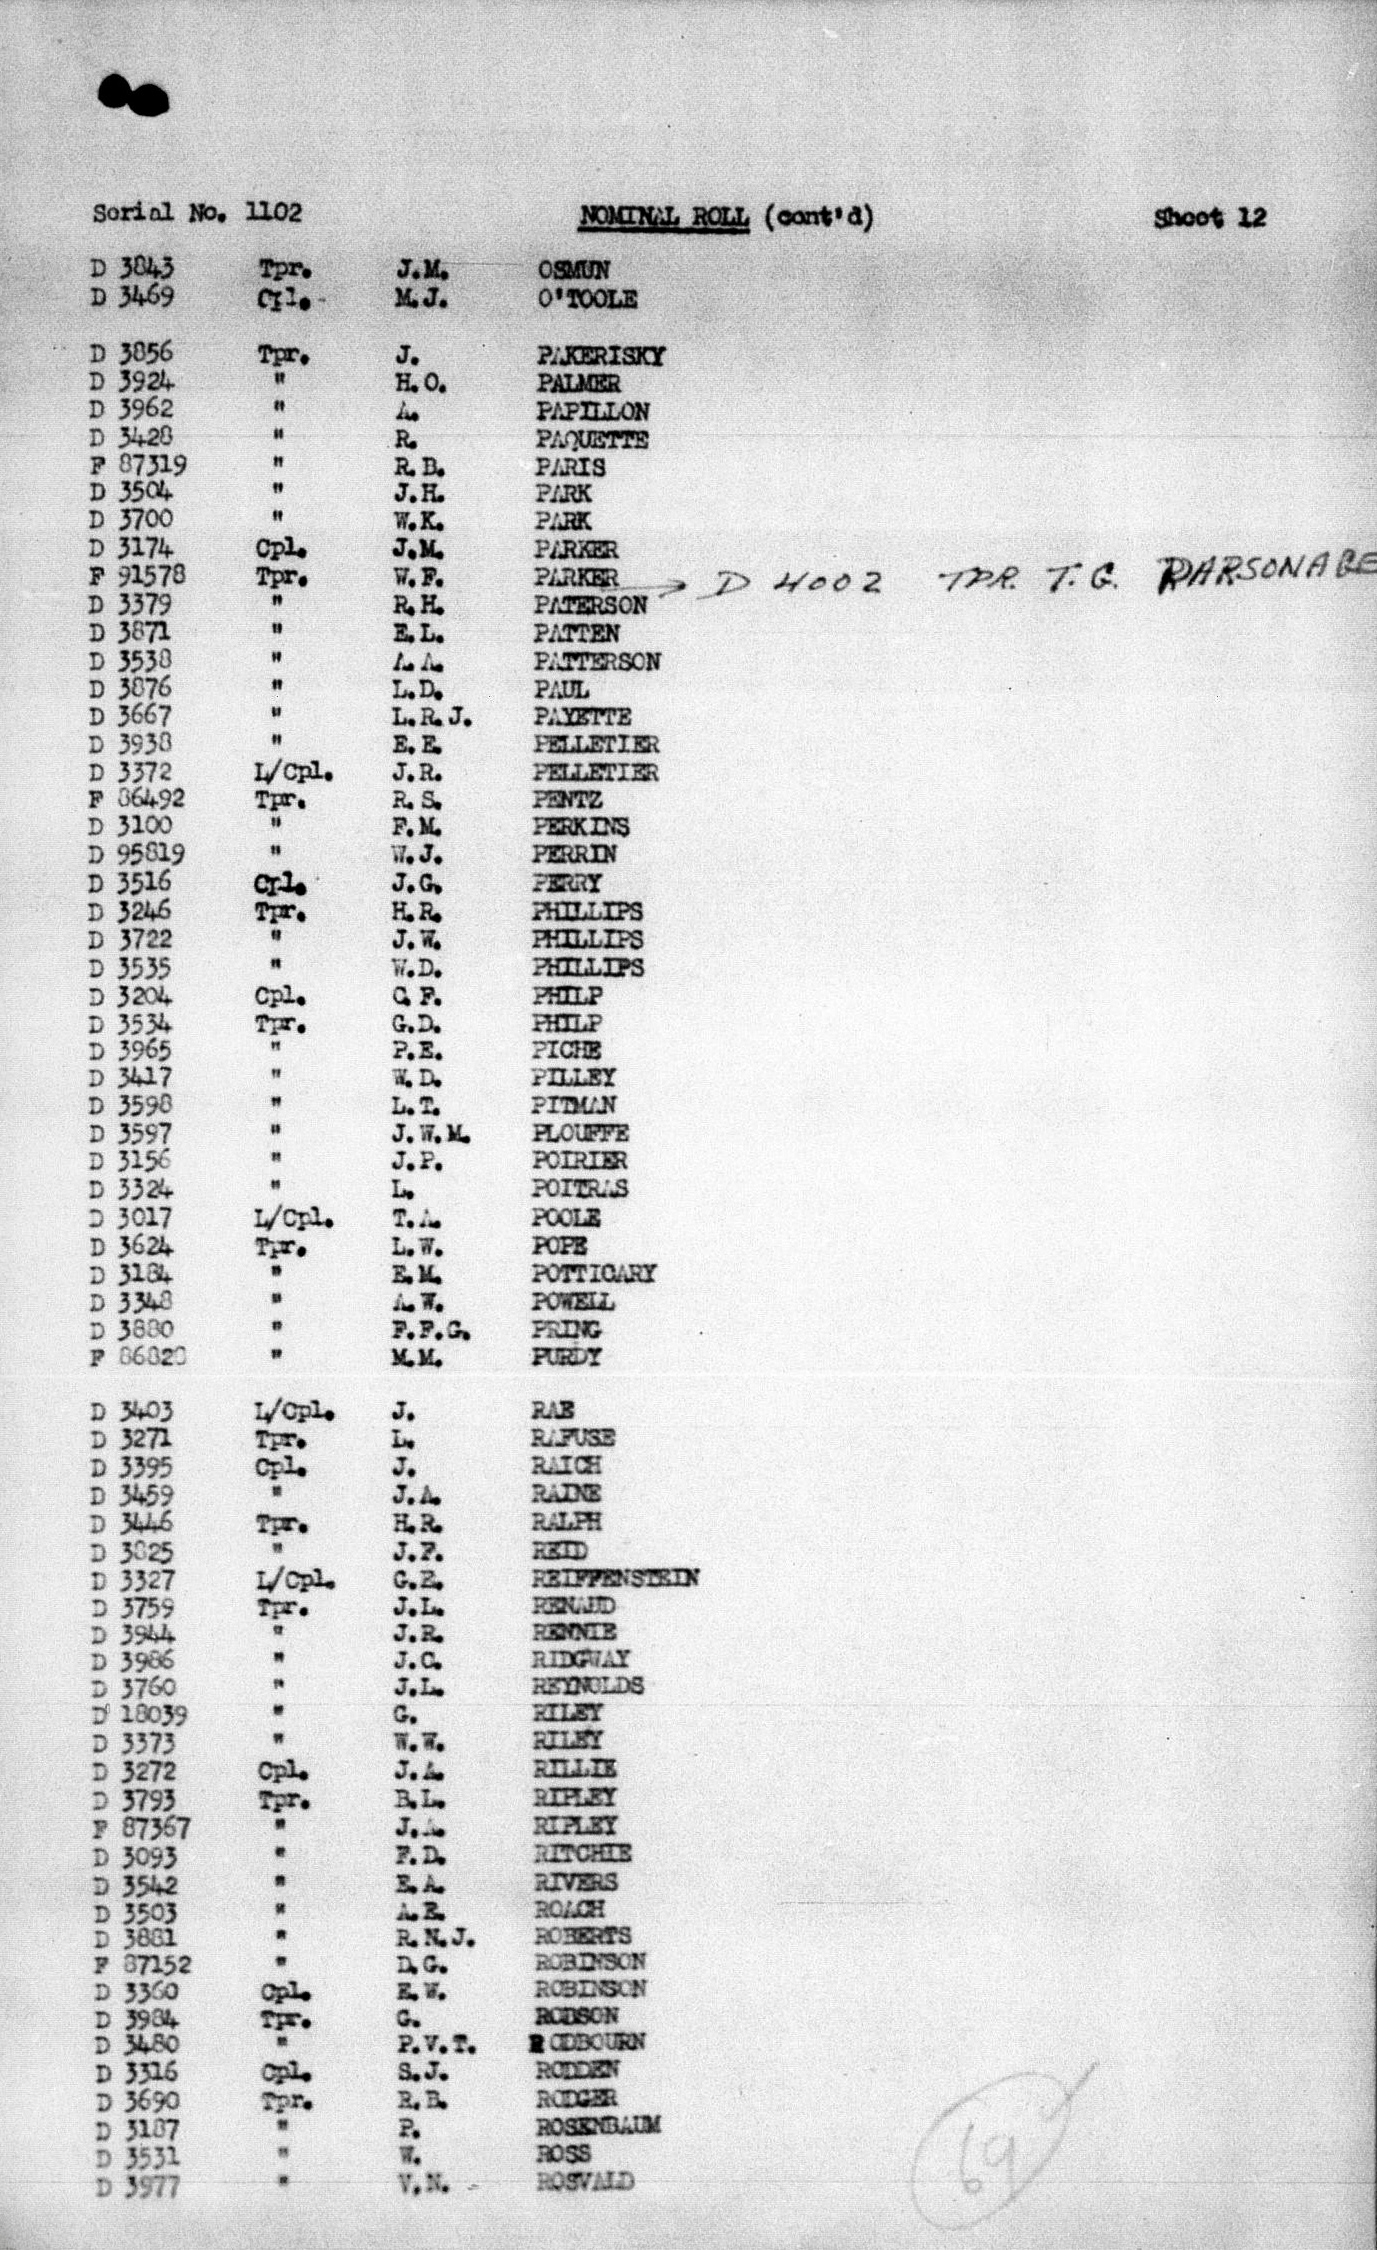 Serial No. 1102 NOMINAL ROLL (cont'd) Sheet 12
D 3843 Tpr. J.M. OSMUN
D 3469 Cpl. M.J. O'TOOLE
D 3856 Tpr. J. PAKERISKY
D 3924 " H.O. PALMER
D 3962 " A. PAPILLON
D 3428 " R. PAQUETTE
F 87319 " R.B. PARIS
D 3504 " J.H. PARK
D 3700 " W.K. PARK
D 3174 Cpl. J.M. PARKER
F 91578 Tpr. W.F. PARKER → D 4002 TPR. T.G. PARSONAGE
D 3379 " R.H. PATERSON
D 3871 " E.L. PATTEN
D 3538 " A.A. PATTERSON
D 3876 " L.D. PAUL
D 3667 " L.R.J. PAYETTE
D 3938 " E.E. PELLETIER
D 3372 L/Cpl. J.R. PELLETIER
F 86492 Tpr. R.S. PENTZ
D 3100 " F.M. PERKINS
D 95819 " W.J. PERRIN
D 3516 Cpl. J.G. PERRY
D 3246 Tpr. H.R. PHILLIPS
D 3722 " J.W. PHILLIPS
D 3535 " W.D. PHILLIPS
D 3204 Cpl. C.F. PHILP
D 3534 Tpr. G.D. PHILP
D 3965 " P.E. PICHE
D 3417 " W.D. PILLEY
D 3598 " L.T. PITMAN
D 3597 " J.W.M. PLOUFFE
D 3156 " J.P. POIRIER
D 3324 " L. POITRAS
D 3017 L/Cpl. T.A. POOLE
D 3624 Tpr. L.W. POPE
D 3184 " E.M. POTTICARY
D 3348 " A.W. POWELL
D 3880 " F.F.G. PRING
F 86828 " M.M. PURDY
D 3403 L/Cpl. J. RAE
D 3271 Tpr. L. RAFUSE
D 3395 Cpl. J. RAICH
D 3459 " J.A. RAINE
D 3446 Tpr. H.R. RALPH
D 3825 " J.F. REID
D 3327 L/Cpl. G.E. REIFFENSTEIN
D 3759 Tpr. J.L. RENAUD
D 3944 " J.R. RENNIE
D 3986 " J.C. RIDGWAY
D 3760 " J.L. REYNOLDS
D 18039 " G. RILEY
D 3373 " W.W. RILEY
D 3272 Cpl. J.A. RILLIE
D 3793 Tpr. B.L. RIPLEY
F 87367 " J.A. RIPLEY
D 3093 " F.D. RITCHIE
D 3542 " E.A. RIVERS
D 3503 " A.E. ROACH
D 3881 " R.N.J. ROBERTS
F 87152 " D.G. ROBINSON
D 3360 Cpl. E.W. ROBINSON
D 3984 Tpr. G. ROBSON
D 3480 " P.V.T. RODBOURN
D 3316 Cpl. S.J. RODDEN
D 3690 Tpr. R.B. RODGER
D 3187 " P. ROSENBAUM
D 3531 " W. ROSS
D 3977 " V.N. ROSVALD
69